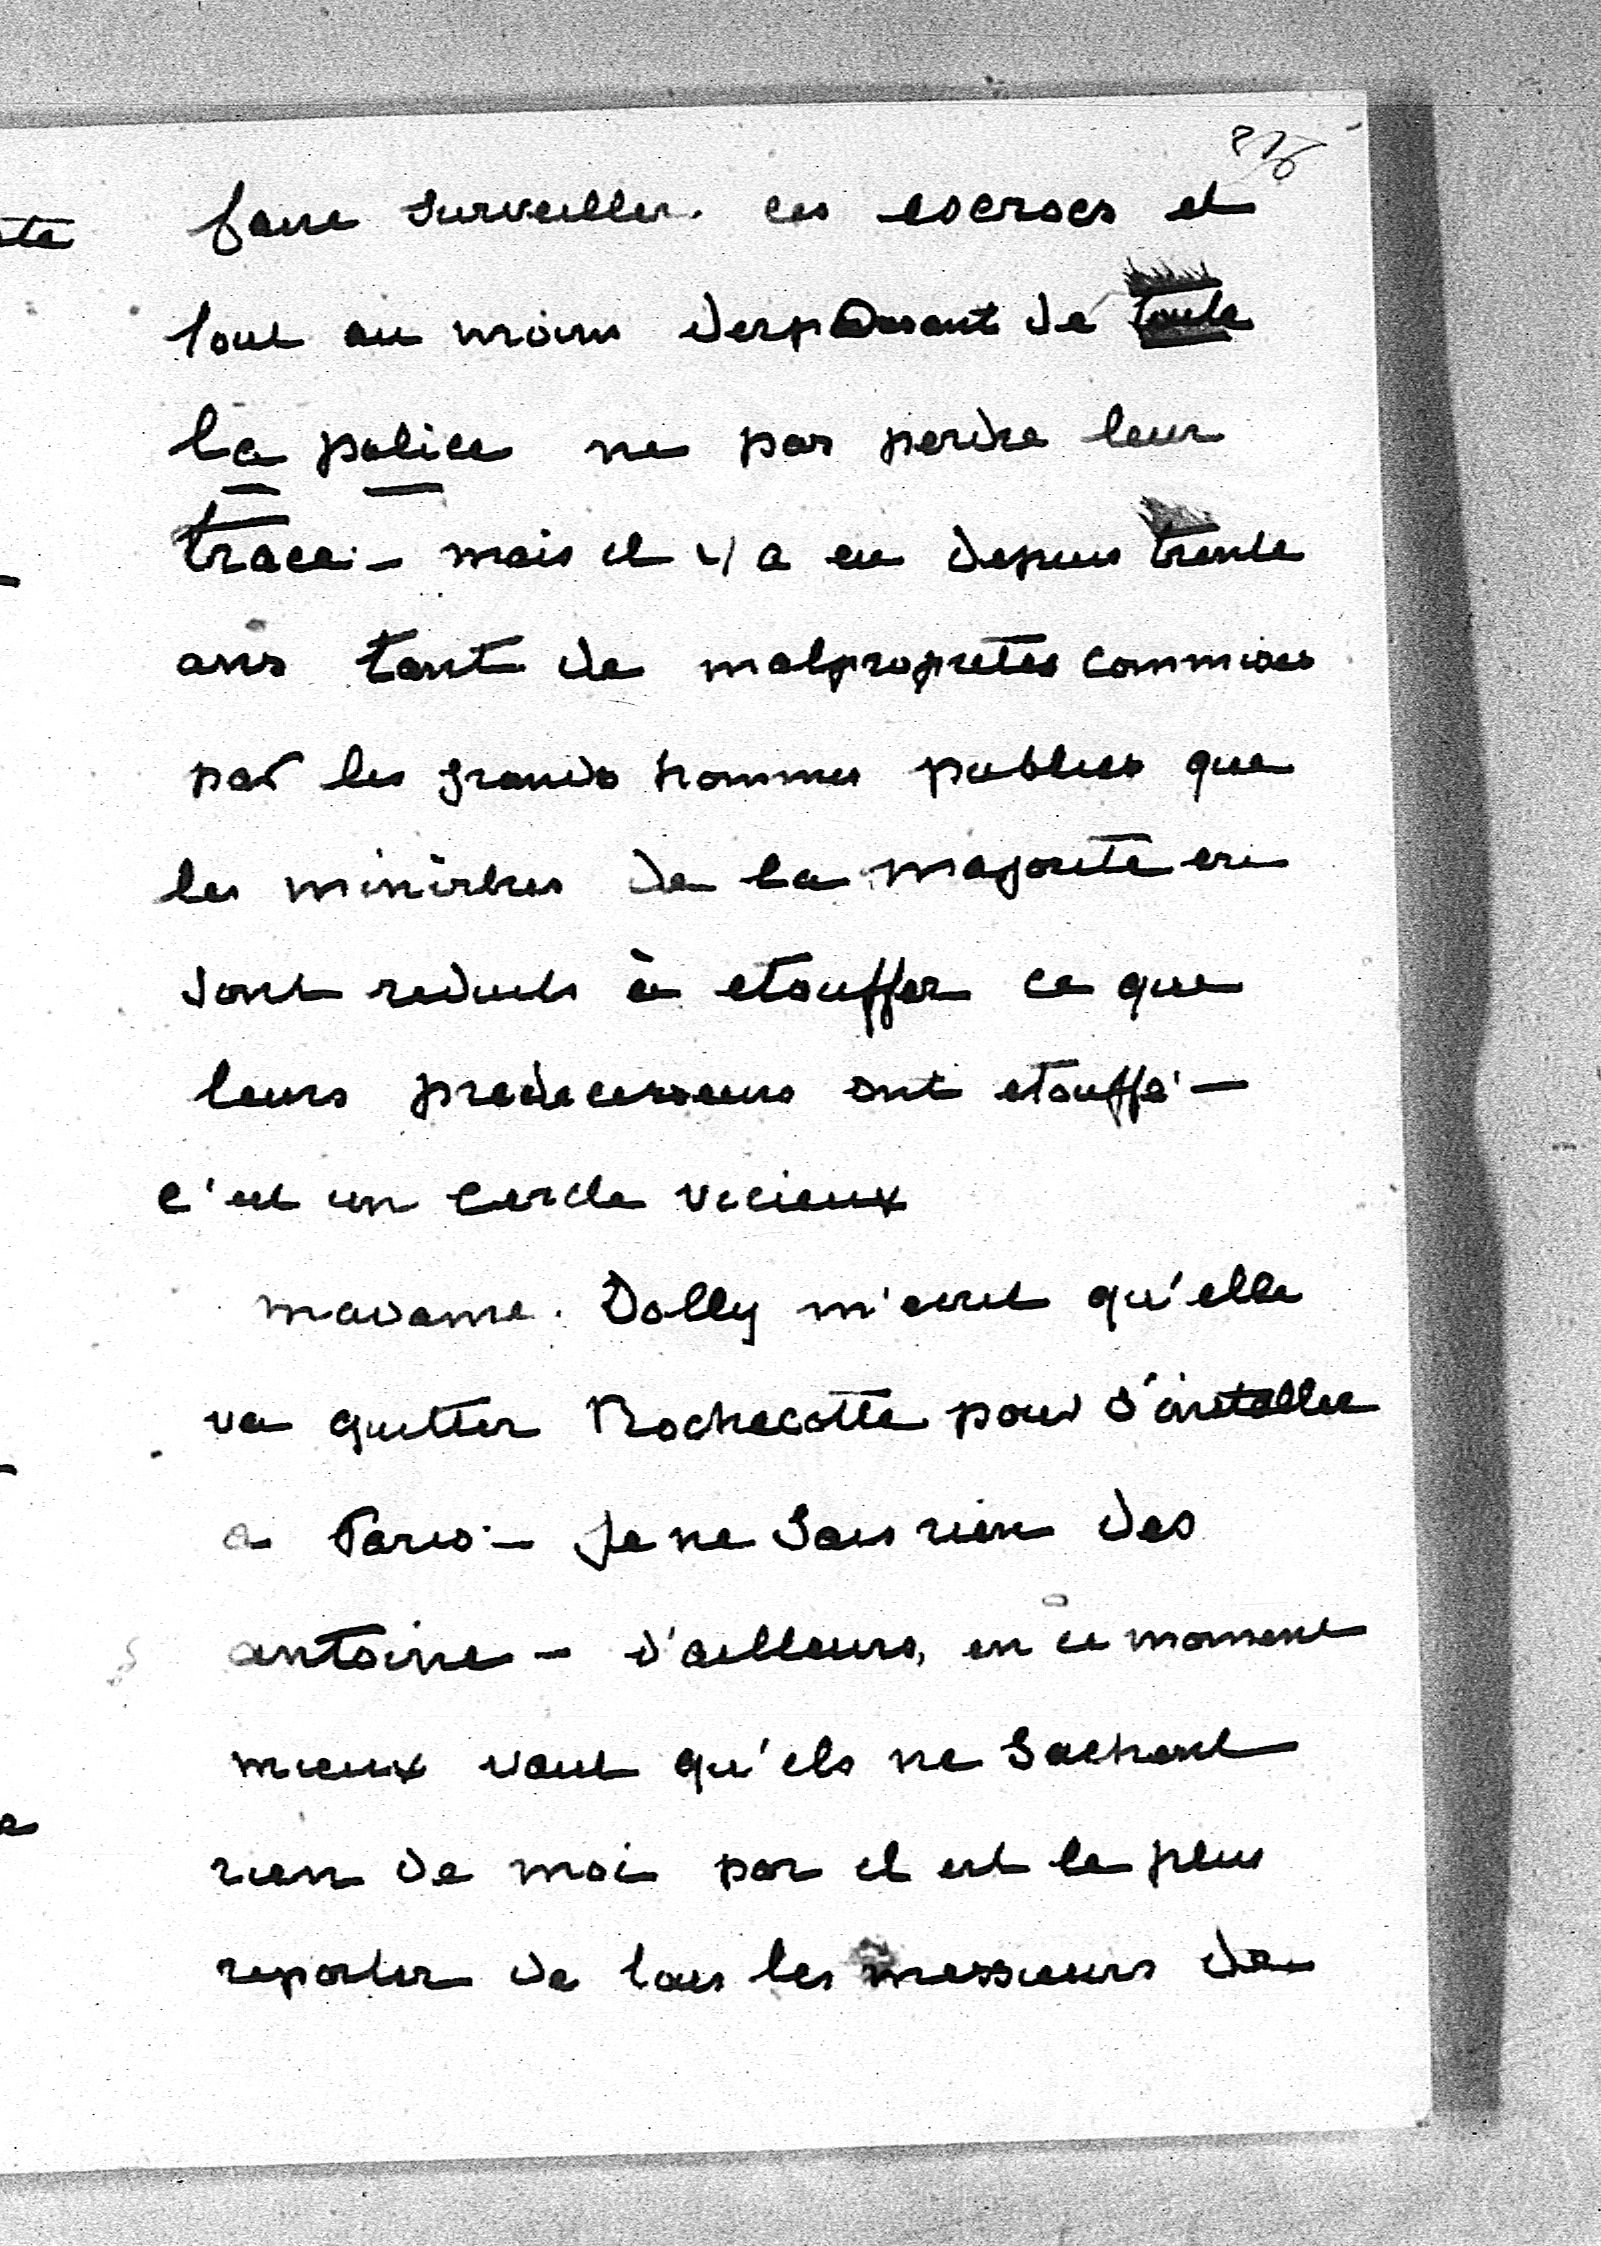 faire surveiller ces escrocs et
tout au moins disposant de toute
la police ne pas perdre leur
trace. – mais il y a eu depuis trente
ans tant de malpropretes commises
par les grands hommes publics que
les ministres de la majorite en
sont reduits à etouffer ce que
leurs predecesseurs ont etouffé –
c'est un cercle vicieux
madame. Dolly m'ecrit qu'elle
va quitter Rochecotte pour s'installer
a Paris. – Je ne sais rien des
antoine – d'ailleurs, en ce moment
mieux vaut qu'ils ne sachent
rien de moi par il est le plus
reporter de tous les messieurs de